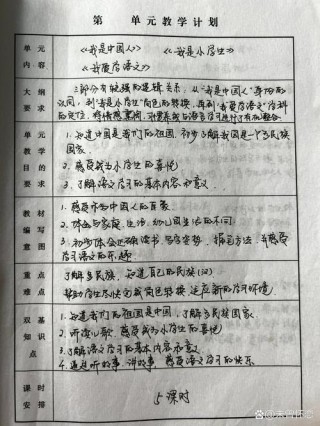 第 单元教学计划
单元
内容
《我是中国人》 《我是小学生》
《我爱学语文》
大纲
要求
三部分有较强的逻辑关系,从“我是中国人”身份的
认同,到“我是小学生”角色的转换,再到“我爱学语文”学科
的定位,
单元
教学
目的
要求
1.知道中国是我们的祖国,初步了解我国是一个多民族
国家。
2.感受成为小学生的喜悦
3.了解语文学习的基本内容和意义
教材
编写
意图
1.感受作为中国人的自豪
2.体会与家庭生活、幼儿园生活的不同
3.初步体会正确读书、写字姿势、执笔方法,并感受
学习语文的乐趣
重点
难点
了解多民族,知道自己的民族(汉)
帮助学生尽快完成角色转换 适应新的学习环境
双基
知识
点
1.知道我们的祖国是中国,了解多民族国家。
2.诵读儿歌 感受成为小学生的喜悦
3.了解语文学习的基本内容和意义
4.通过听故事、讲故事,感受语文学习的快乐
课时
安排
5课时